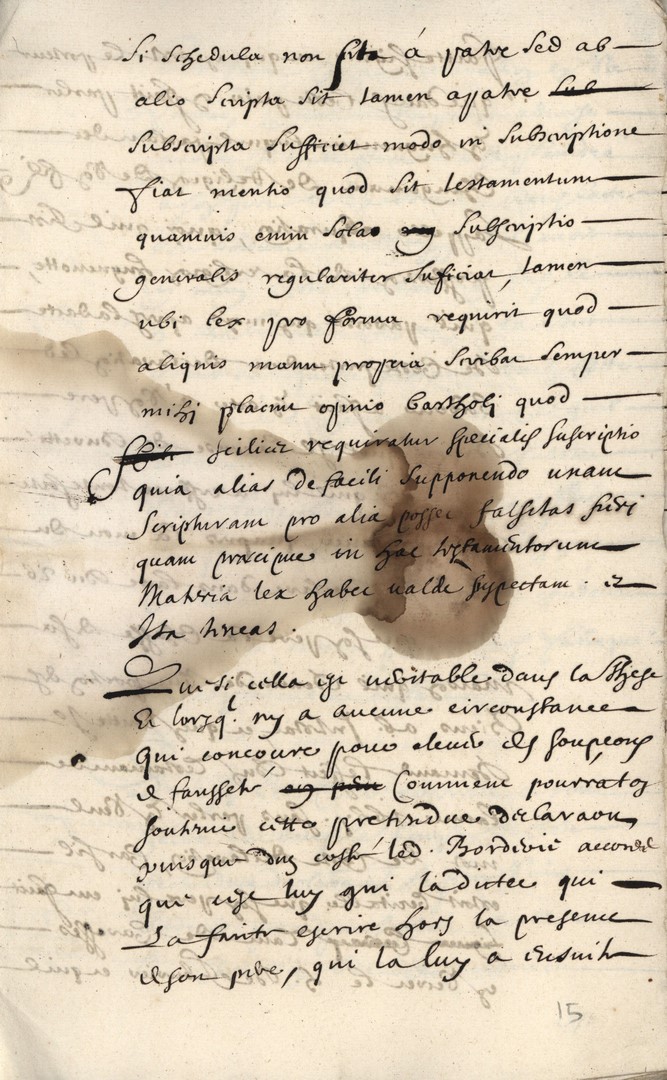 Si schedula non sita á patre sed ab
alio scripta sit tamen apatre sub
subscripta sufficiet modo in subscriptione
fiat mentio quod sit testamentum
quamuis enim sola subscriptio
generalis regulariter suficiat, tamen
ubi lex pro forma requirit quod
aliquis manu propria scribat semper
mihj placuit opinio bartholj quod
scilicet requiratur specialis suscriptio
quia alias de facili supponendo unam
scripturam pro alia posset falsitas fierj
quam precipue in hac testamentorum
Materia lex habet ualde suspectam. et
Ita teneas.
Que si cella est ueritable dans la these
Et lorsq.l ny a aucune circonstance
qui concoure pour des soupçons
de fausseté Comment pourrat on
soutenir cette pretendue declaraon,
puisque dun costé led. Borderie accorde
que cest luy qui la dictee qui
La faitte escrire hors la presence
de son pere, qui la luy a ensuitte
15